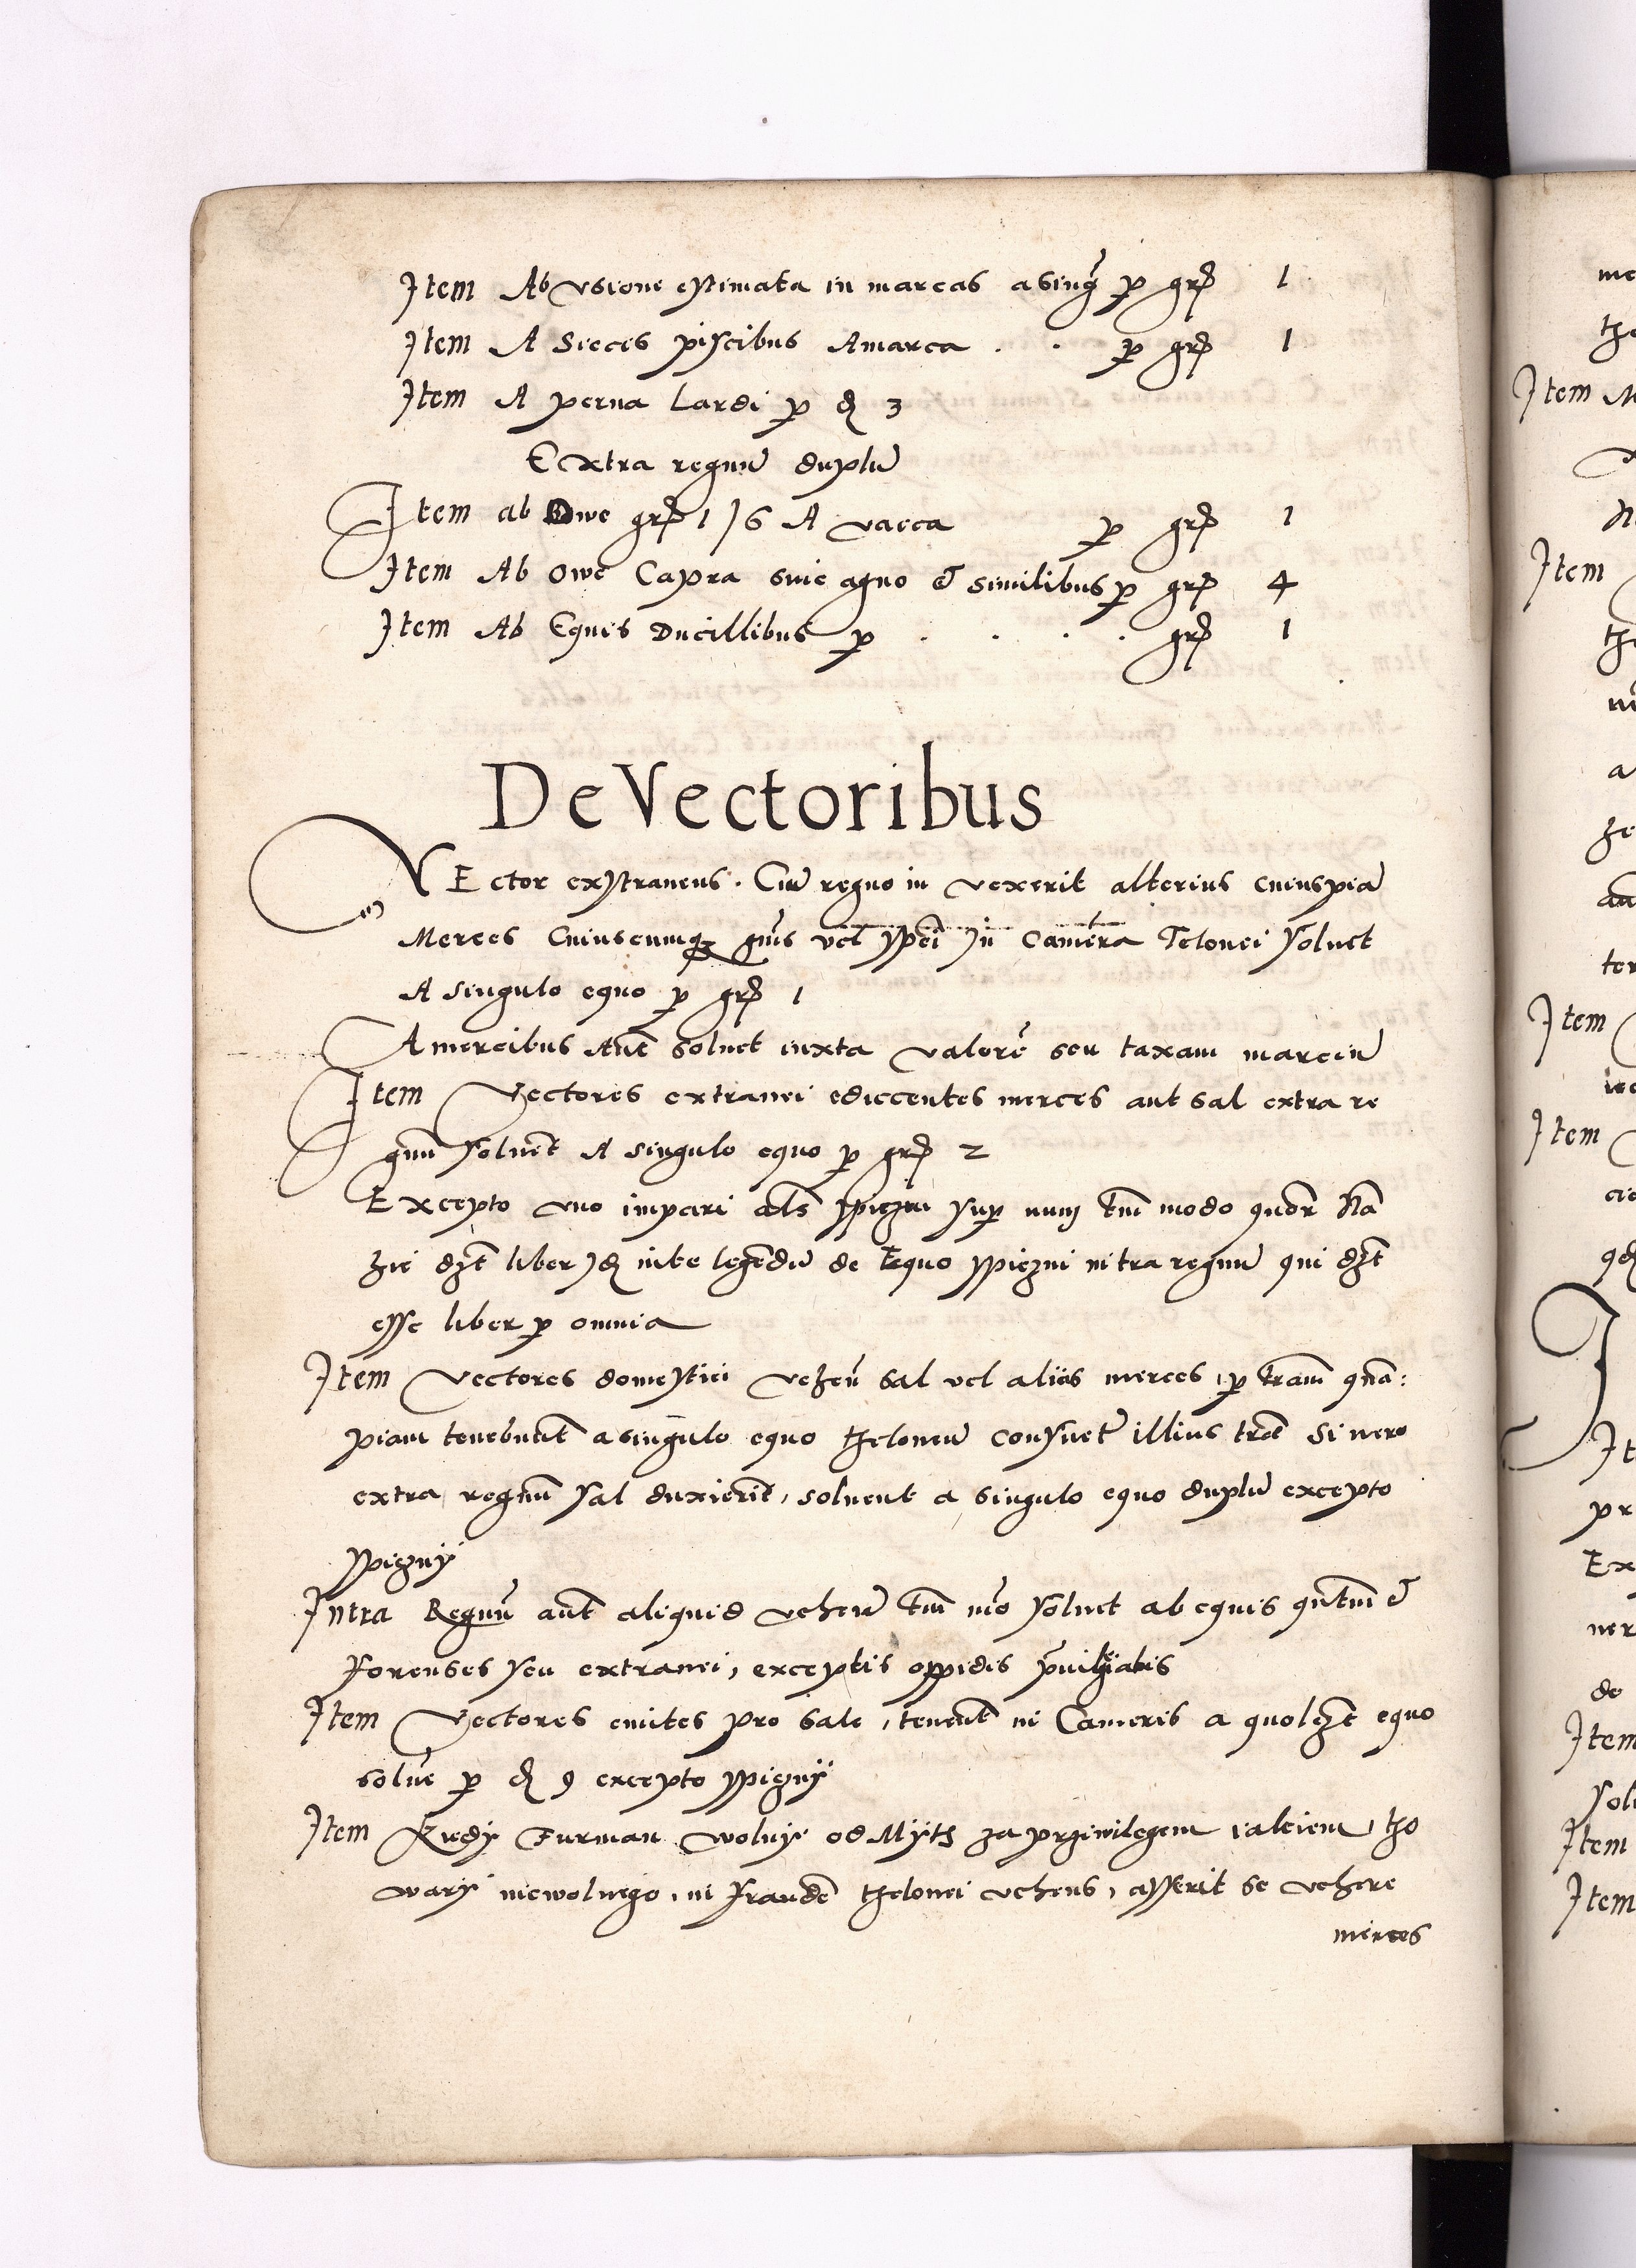 Item Ab vsione estimata in marcas a sing̃ ꝑ gr̃ 1
Item A Siccis piscibus Amarca . . ꝑ gr̃ 1
Item A perna Lardi ꝑ ₰ 3
Extra regnũ duplũ
Item ab Owe gr̃ 1 A vacca ꝑ gr̃ 1
Item Ab owe Capra suie agno & similibus ꝑ gr̃ 4
Item Ab Equis Ducillibus ꝑ . . . . gr̃ 1
De Vectoribus
VEctor exstraneus . Cũ regno in vexerit alterius cuiuspiã
Merces Cuiuscumqꝫ gñis vel sp̃ei In Camera Telonei soluet
A singulo equo ꝑ gr̃ 1
A mercibus Aut̃ soluet iuxta valorẽ seu taxam marciũ
Item Vectores extranei ediccentes merces aut sal extra re
gnũ soluẽt A singulo equo ꝑ gr̃ 2
Excepto vno impari als̃ spiczni sup̱ tm̃ modo
liber de Equo spiczni intra regnũ qui
esse liber ꝑ omnia
Item Vectores domestici vehẽn sal vel aliäs merces, ꝑ terram quã:
piam tenebunt̃ a singulo equo theloneũ consuet̃ illius terre Si vero
extra regnũ sal duxierĩt, soluent a singulo equo duplũ excepto
spiczny
Intra Regnũ aũt aliquid vehẽn tm̃ mõ soluet ab equis quãtum &
forenses seu extranei, exceptis oppidis priuilegiatis
Item Vectores euntes pro sale, tenent̃ in Cameris a quolꝫt equo
soluẽ ꝑ ₰ 9 excepto spiczny
Item Kiedy Furman wolny od Myta za przivilegem iakiem, tho
wary niewolnego, in fraudẽ thelonei vehens, asserit se vehere
merces